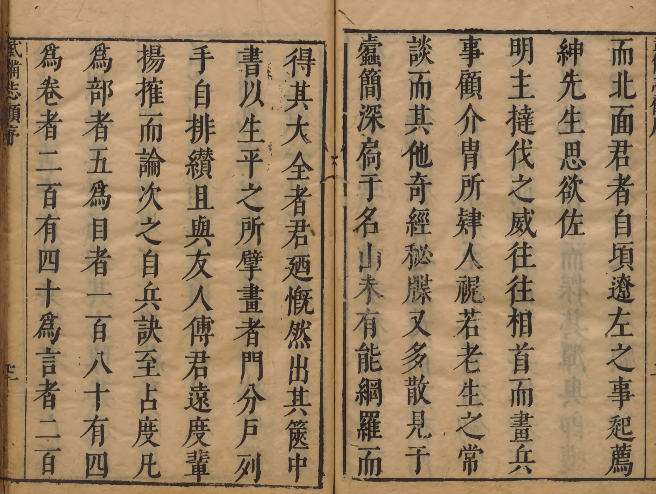 而北面君者自頃遼左之事起薦
紳先生思欲佐
明主撻伐之威往往相首而畫兵
事顧介胄所肄人視若老生之常
談而其他奇經秘牒又多散見于
蠹簡深扃于名山未有能網羅而
得其大全者君廼慨然出其篋中
書以生平之所擘畫者門分戶列
手自排纘且與友人傅君遠度輩
揚搉而論次之自兵訣至占度凡
為部者五為目者一百八十有四
為卷者二百有四十為言者二百
武備志顧序